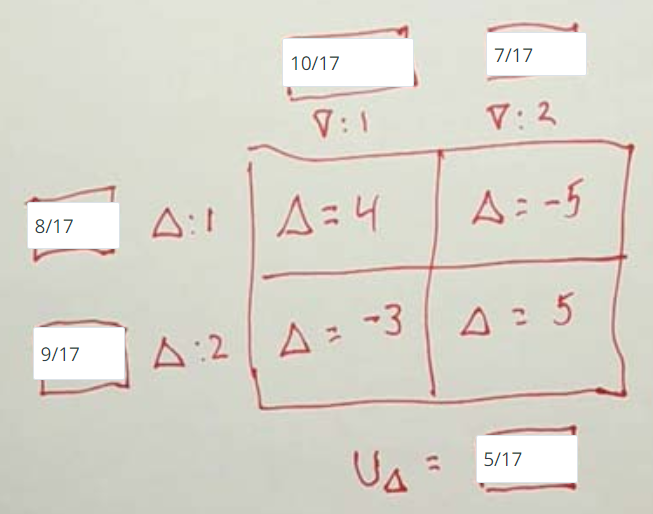 10/17 7/17
∇:1 ∇:2
8/17 Δ:1 Δ=4 Δ=-5
9/17 Δ:2 Δ=-3 Δ=5
U_Δ = 5/17